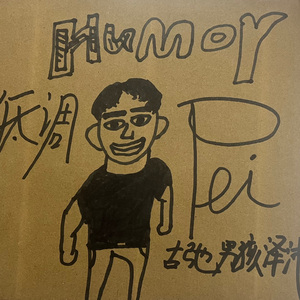 Humor
低调
Pei
古弛男孩泽